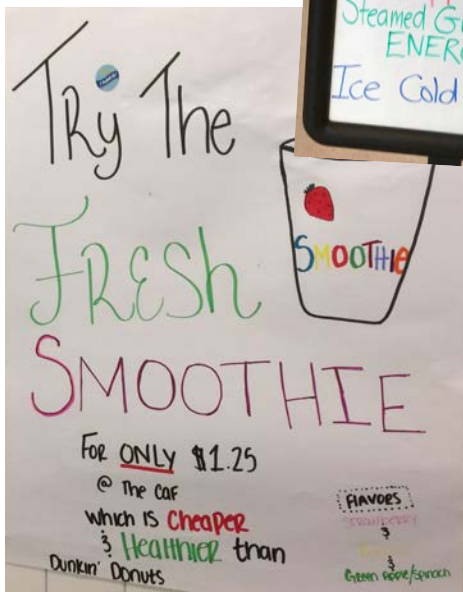 Steamed
ENER
Ice Cold
Try The
FRESh
SMOOTHIE
SMOOTHIE
FOR ONLY $1.25
@ The CaF
which IS Cheaper
& Healthier than
Dunkin' Donuts
FlavorS
STRAWBERRY
&
&
Green Apple/Spinach